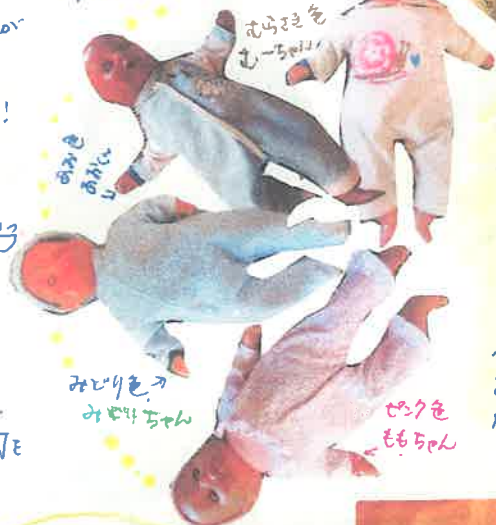 が
!
むらさき色
むーちゃん
あお色
あおくん
みどり色↗
みどりちゃん
ピンク色
ももちゃん